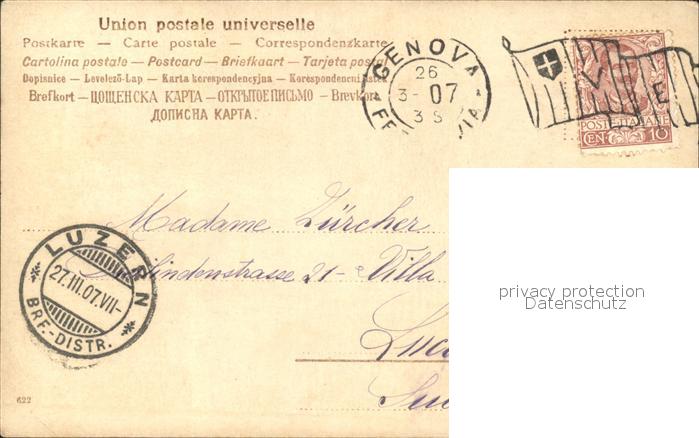 Union postale universelle
Postkarte — Carte postale — Correspondenzkarte
Cartolina postale — Postcard — Briefkaart — Tarjeta postal
Dopisnice — Levelező-Lap — Karta korespondencyjna — Korespondencni
Brefkort — ЦОЩЕНСКА КАРТА — ОТКРЫТОЕ ПИСЬМО — Brevkort
ДОПИСНА КАРТА.
GENOVA
26
3- 07
3 S
FERROVIA
POSTE ITALIANE
CEN. 10
Madame Zürcher
lindenstrasse 21 - Villa
Luc
LUZERN
27.III.07.VII-
BRF.-DISTR.
privacy protection
Datenschutz
622